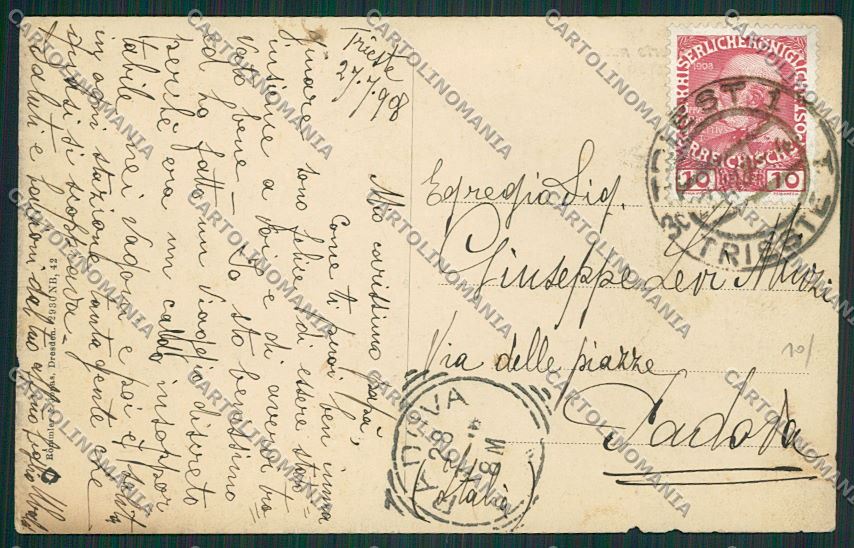 Trieste
27.7.98
Mio carissimo papà,
Come ti puoi ben imma
ginare sono felice di essere sta
insieme a voi e di avervi tro
vato bene – Io sto benissimo
ed ho fatto un viaggio discreto
perché era un caldo insoppor
tabile nei vagoni e poi è salit
in ogni stazione tanta gente che
quasi si scoppiava –
Saluti e bacioni dal tuo
Egregio Sig.
Giuseppe Levi
Via delle piazze
Padova
Italia
KAISERLICHE KÖNIGLICHE
ÖSTERREICHISCHE
1908
10 10
TRIEST 1
TRIESTE 1
PADOVA
28
10/
Römmler & Jonas, Dresden. 12930 NR, 42
CARTOLINOMANIA